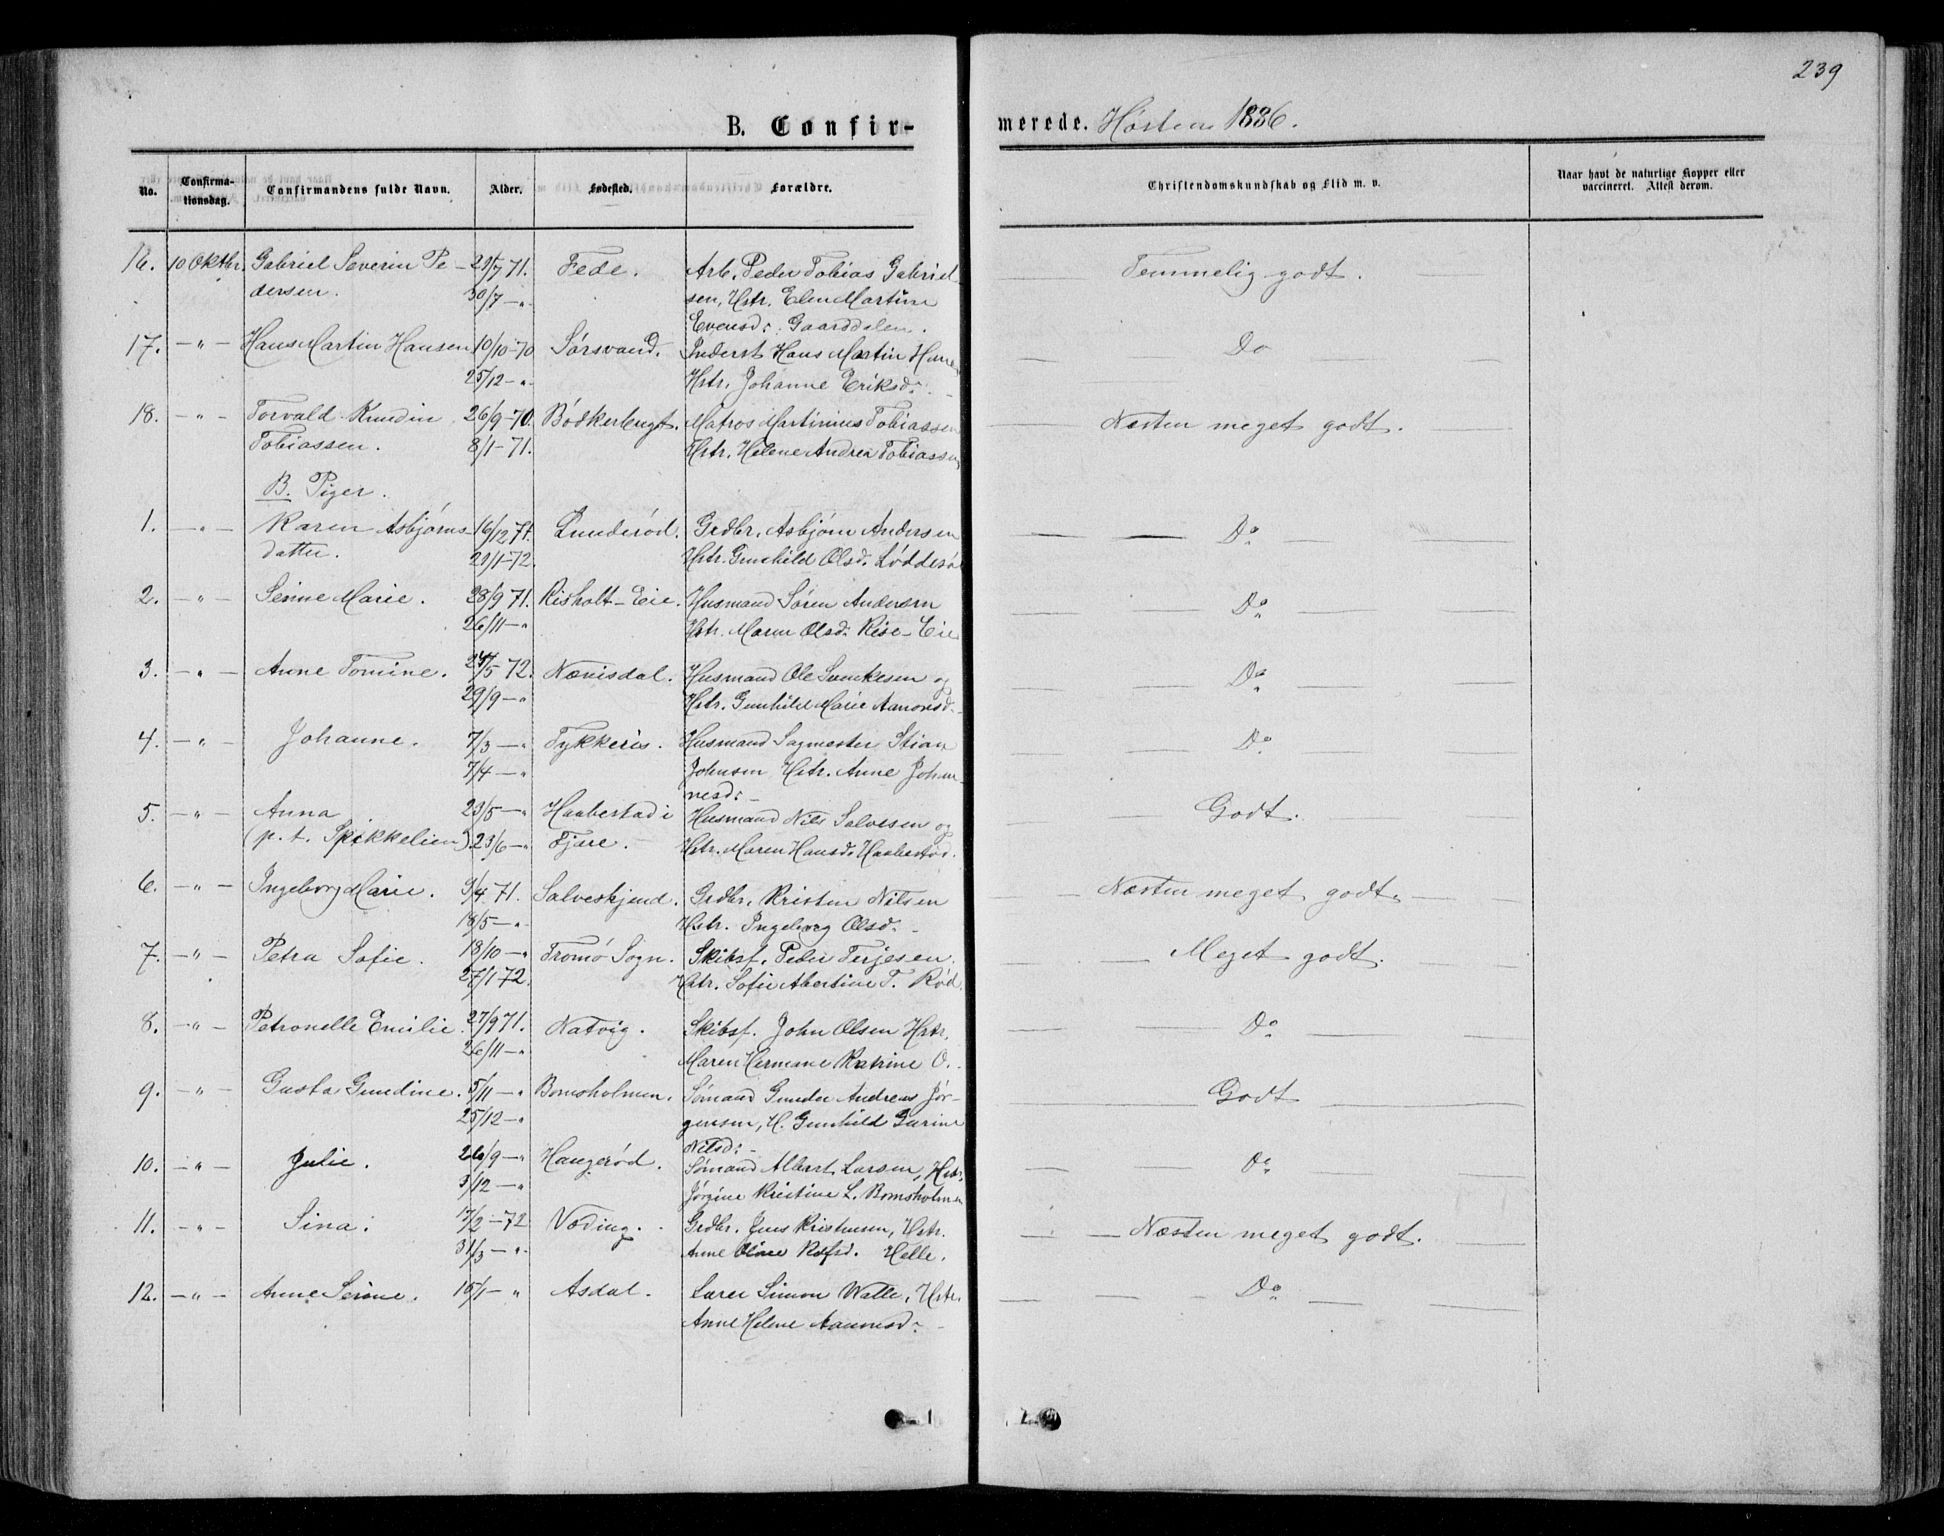 239
B. Confirmerede. Høsten 1886.
No. Confirmationsdag. Confirmandens fulde Navn. Alder. Fødested. Forældre. Christendomskundskab og Flid m. v. Naar havt de naturlige Kopper eller vaccineret. Attest derom.
16. 10 Oktbr. Gabriel Severin Pe- 29/7 71. Fede. Arb. Peder Tobias Gabriel- Temmelig godt.
dersen. 30/7 —„ sen, Hstr. Elen Martine
Evensd: Gaarddalen.
17. —„— Hans Martin Hansen 10/10-70 Sørsvand. Inderst Hans Martin Do
25/12 —„ Hstr. Johanne Eriksd:
18. —„— Torvald Knudin 26/9-70. Bødkerbugt. Matros Martinius Tobiassen Næsten meget godt.
Tobiassen. 8/1-71. Hstr. Helene Andrea Tobiassen
B. Piger.
1. —„— Karen Asbjørns- 16/12 71. Lunderød. Grdbr. Asbjørn Andersen Do
datter. 21/1-72. Hstr. Gunhild Olsd. Løddesø
2. —„— Serine Marie. 28/9 71. Risholt-Eie. Husmand Søren Andersen Do
26/11 —„ Hstr. Maren Olsd: Rise-Eie
3. —„— Anne Tomine. 24/5 72. Nævisdal. Husmand Ole Sunkesen og Do
29/9 —„ Hstr. Gunhild Marie Aanonsd.
4. —„— Johanne. 7/3 —„ Tykkeris. Husmand Sagmester Stian Do
7/4 —„ Johnsen Hstr. Anne Johan-
nesd:
5. —„— Anna 23/5 —„ Haabestad i Husmand Nils Salvesen og Godt.
(p. t. Spikkelien) 23/6 —„ Fjære. Hstr. Maren Hansd. Haabestad.
6. —„— Ingeborg Marie. 9/4 71. Salveskjend. Grdbr. Kristen Nilsen Næsten meget godt.
18/5 —„ Hstr. Ingeborg Olsd:
7. —„— Petra Sofie. 18/10 —„ Tromø Sogn. Skibsf. Peder Terjesen Meget godt.
27/1 72. Hstr. Sofie Abertine T. Rød.
8. —„— Petronelle Emilie. 27/9 71. Natvig. Skibsf. John Olsen Hstr. Do
26/11 —„ Maren Hermane Katrine O.
9. —„— Gusta Gundine. 5/11 —„ Bomsholmen. Sømand Gunder Andreas Jør- Godt
25/12 —„ gensen, H. Gunhild Gurine
Nilsd:
10. —„— Julie. 26/9 —„ Haugerød. Sømand Albert Larsen, Hstr. Do
3/12 —„ Jørgine Kristine L. Bomsholmen
11. —„— Sina. 17/2-72 Væding. Grdbr. Jens Kristensen, Hstr. Næsten meget godt.
31/3 —„ Anne Oline Helle.
12. —„— Anne Serine. 15/1 —„ Asdal. Lærer Simon Walle, Hstr. Do
Anne Helene Aanonsd: